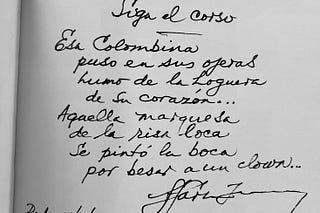 Siga el corso
Esa Colombina
puso en sus ojeras
humo de la hoguera
de su corazón...
Aquella marquesa
de la risa loca
Se pintó la boca
por besar a un clown...